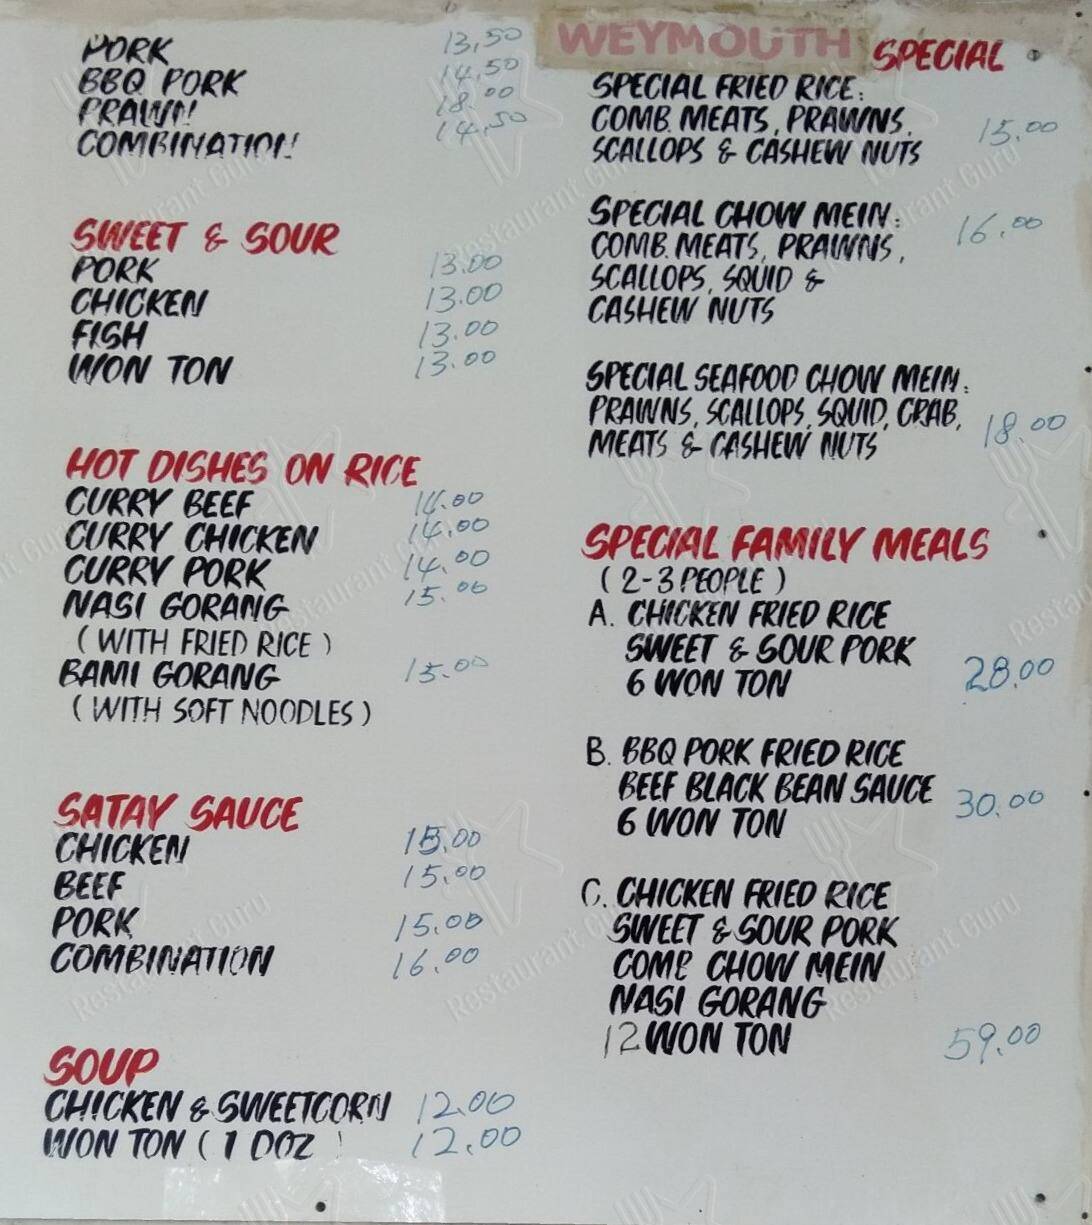 PORK 13.50
BBQ PORK 14.50
PRAWN 18.00
COMBINATION 14.50
SWEET & SOUR
PORK 13.00
CHICKEN 13.00
FISH 13.00
WON TON 13.00
HOT DISHES ON RICE
CURRY BEEF 14.00
CURRY CHICKEN 14.00
CURRY PORK 14.00
NASI GORANG 15.00
( WITH FRIED RICE )
BAMI GORANG 15.00
( WITH SOFT NOODLES )
SATAY SAUCE
CHICKEN 15.00
BEEF 15.00
PORK 15.00
COMBINATION 16.00
SOUP
CHICKEN & SWEETCORN 12.00
WON TON ( 1 DOZ ) 12.00
WEYMOUTH SPECIAL
SPECIAL FRIED RICE:
COMB. MEATS, PRAWNS, 15.00
SCALLOPS & CASHEW NUTS
SPECIAL CHOW MEIN: 16.00
COMB. MEATS, PRAWNS,
SCALLOPS, SQUID &
CASHEW NUTS
SPECIAL SEAFOOD CHOW MEIN:
PRAWNS, SCALLOPS, SQUID, CRAB, 18.00
MEATS & CASHEW NUTS
SPECIAL FAMILY MEALS
( 2-3 PEOPLE )
A. CHICKEN FRIED RICE
SWEET & SOUR PORK
6 WON TON 28.00
B. BBQ PORK FRIED RICE
BEEF BLACK BEAN SAUCE 30.00
6 WON TON
C. CHICKEN FRIED RICE
SWEET & SOUR PORK
COMB CHOW MEIN
NASI GORANG
12 WON TON 59.00
Restaurant Guru